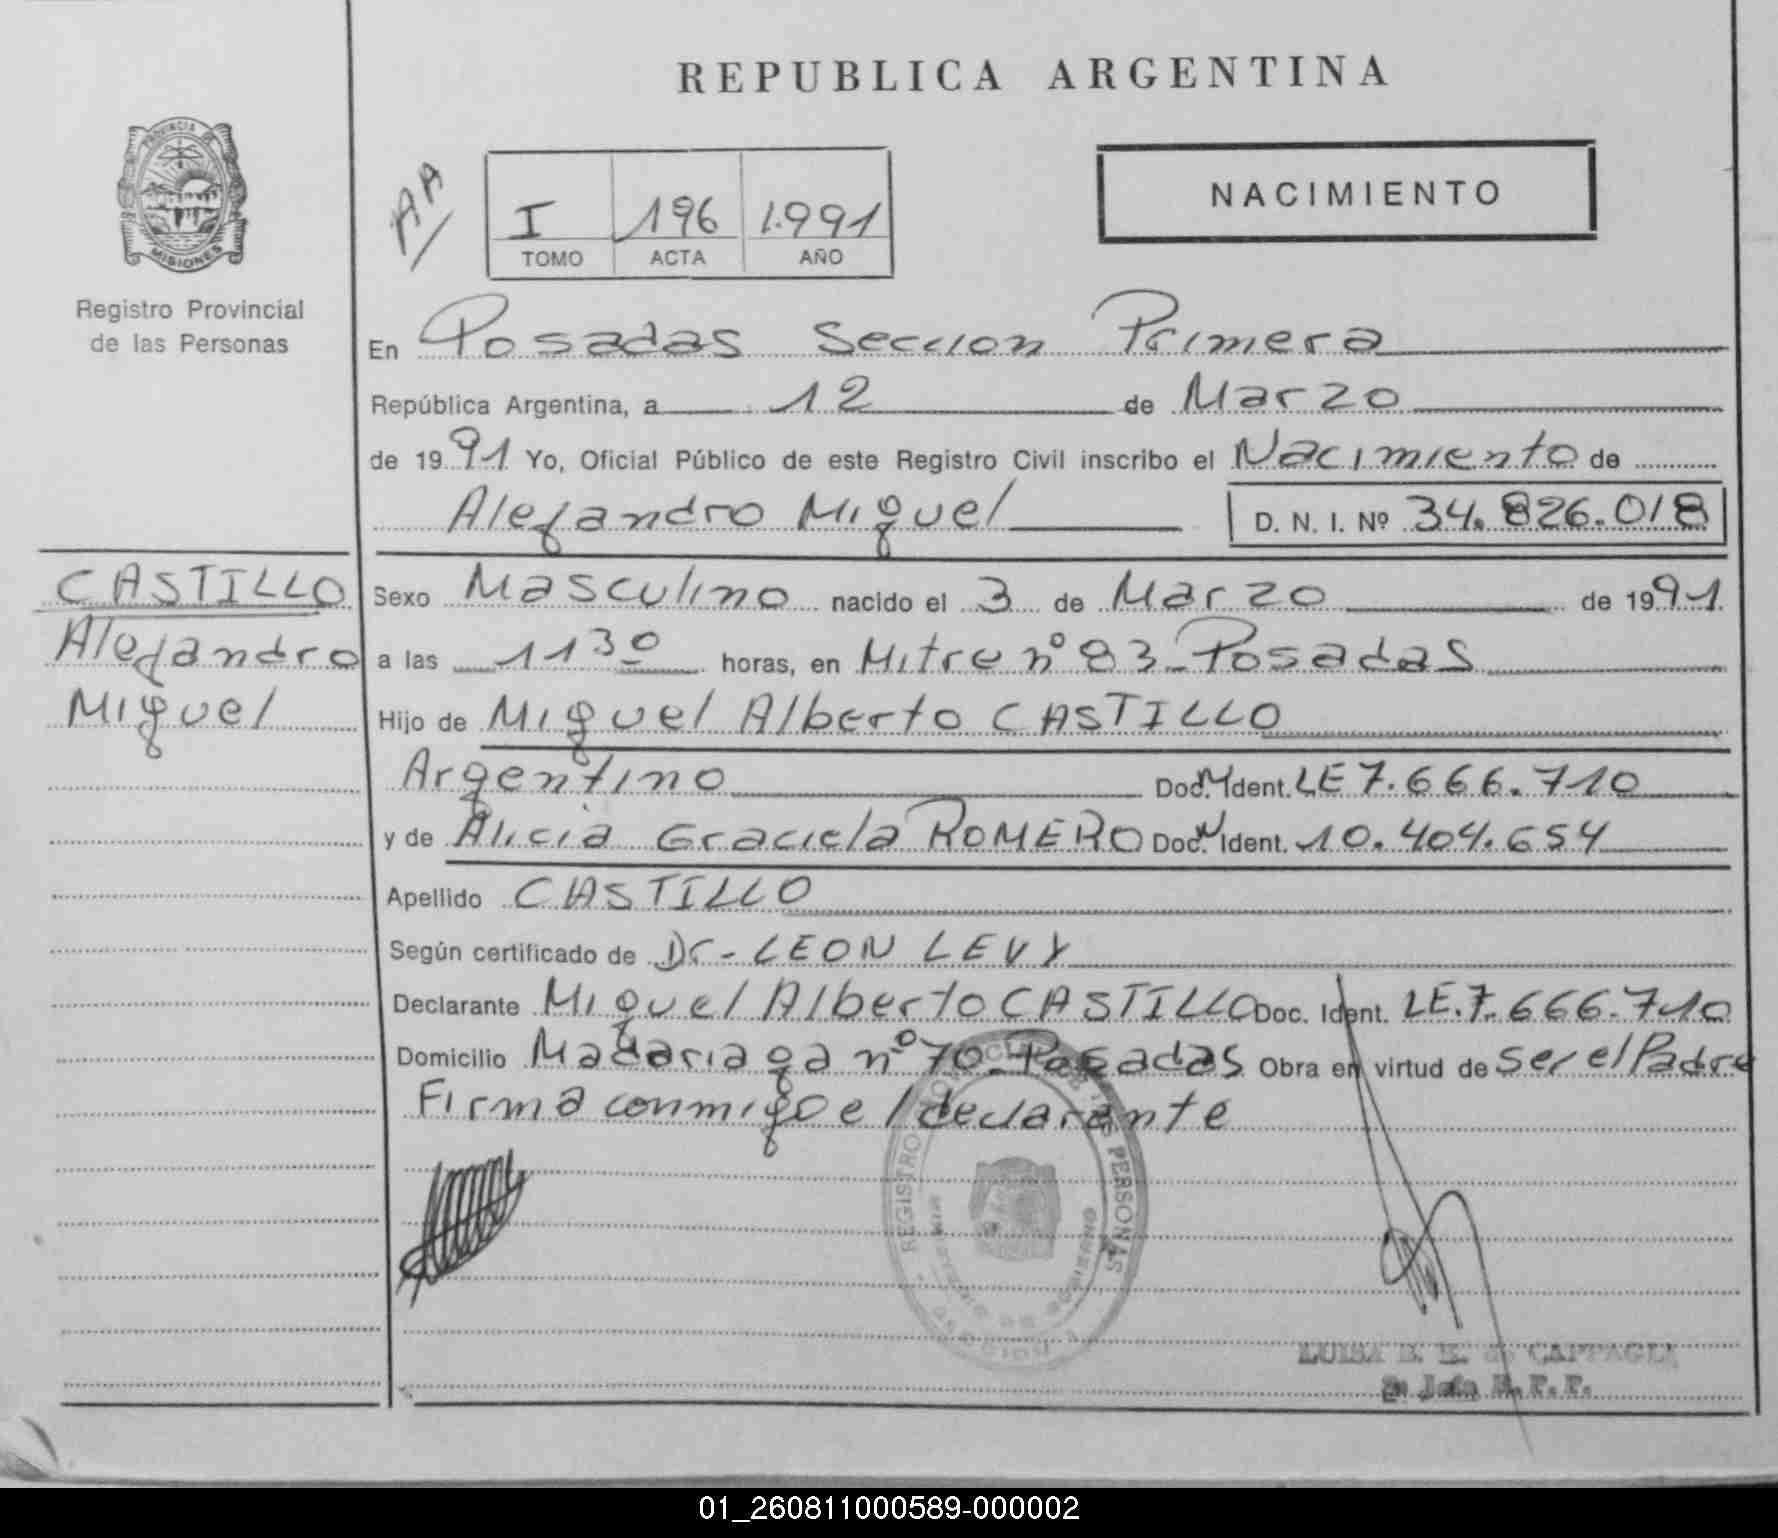 REPUBLICA ARGENTINA
PROVINCIA DE
MISIONES
Registro Provincial
de las Personas
AA
I 196 1.991
TOMO ACTA AÑO
NACIMIENTO
En Posadas Seccion Primera
República Argentina, a 12 de Marzo
de 1991 Yo, Oficial Público de este Registro Civil inscribo el Nacimiento de
Alejandro Miguel D. N. I. Nº 34.826.018
CASTILLO
Alejandro
Miguel
Sexo Masculino nacido el 3 de Marzo de 1991
a las 11 30 horas, en Mitre nº 83 - Posadas
Hijo de Miguel Alberto CASTILLO
Argentino Doc. Ident. LE 7.666.710
y de Alicia Graciela ROMERO Doc. Ident. 10.404.654
Apellido CASTILLO
Según certificado de Dr - LEON LEVY
Declarante Miguel Alberto CASTILLO Doc. Ident. LE.7.666.710
Domicilio Madariaga nº 70 - Posadas Obra en virtud de ser el Padre
Firma conmigo el declarante
REGISTRO PROVINCIAL DE LAS PERSONAS
LUISA de CAPPAGLI
2º Jefe R.F.F.
01_260811000589-000002